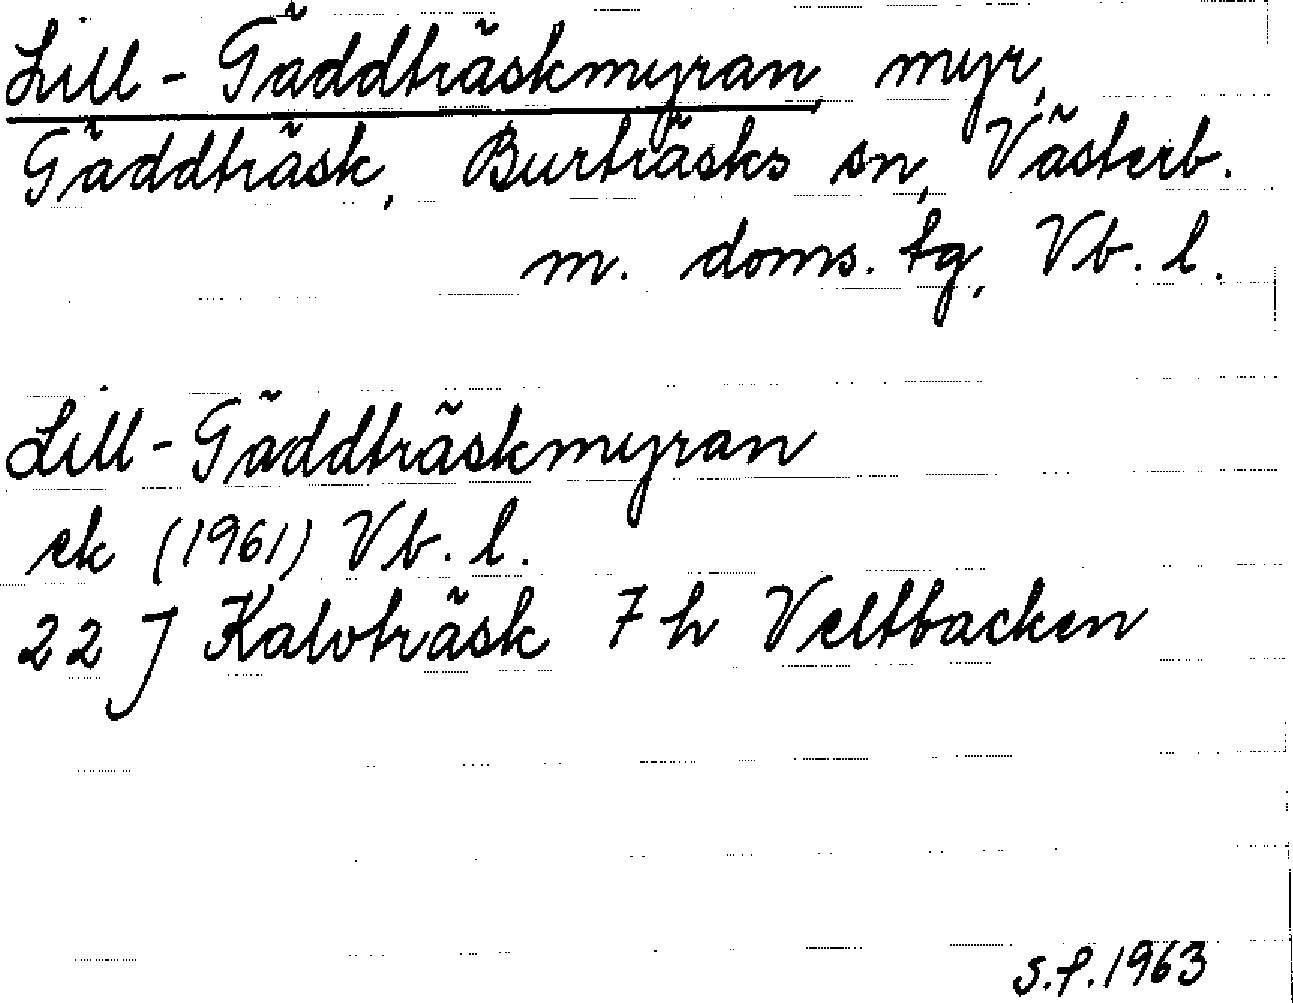 Lill-Gäddträskmyran myr,
Gäddträsk, Burträsks sn, Västerb.
m. doms. tg, Vb. l.
Lill-Gäddträskmyran
ek (1961) Vb. l.
22 J Kalvträsk 7 h Veltbacken
S.f. 1963